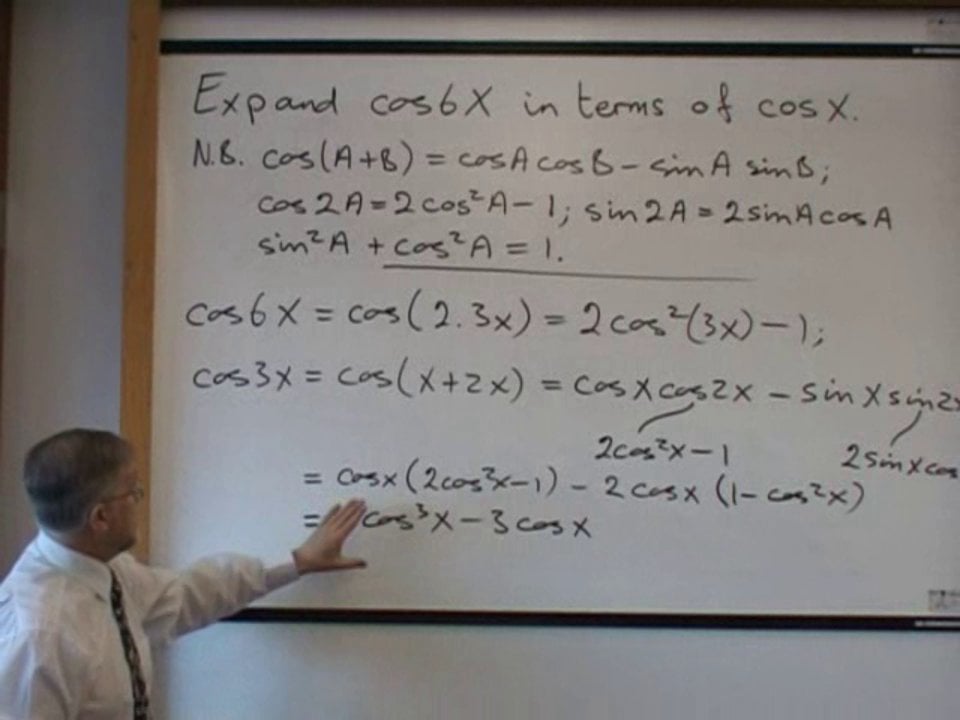 Expand cos6X in terms of cosX.
N.B. cos(A+B) = cosA cosB - sinA sinB;
cos2A = 2cos²A - 1; sin2A = 2sinA cosA
sin²A + cos²A = 1.
cos6X = cos(2.3x) = 2cos²(3x) - 1;
cos3x = cos(x+2x) = cosx cos2x - sinx sin2x
2cos²x - 1 2sinx cos
= cosx (2cos²x - 1) - 2cosx (1 - cos²x)
= cos³x - 3cosx